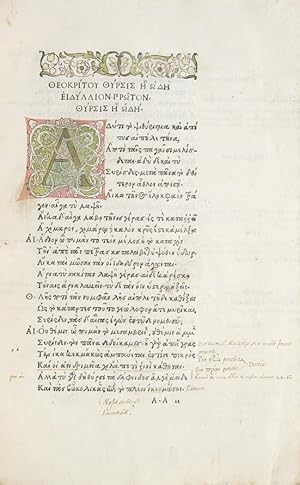 ΘΕΟΚΡΙΤΟΥ ΘΥΡΣΙΣ Ἢ ΩΔΗ
ΕΙΔΥΛΛΙΟΝ ΠΡΩΤΟΝ.
ΘΥΡΣΙΣ Η ΩΔΗ.
Α
Δύ τι τὸ ψιθύρισμα καὶ ἁ πί
τυς αἰπόλε τήνα,
Ἁ ποτὶ ταῖς παγαῖσι μελίσδε
ται, ἁδὺ δὲ καὶ τὺ
Συρίσδες. μετὰ πᾶνα τὸ δεύ
τερον ἆθλον ἀποισῇ.
Αἴκα τῆνος ἕλῃ κεραὸν τρά
γον, αἶγα τὺ λαψῇ.
Αἴκα δ' αἶγα λάβῃ τῆνος γέρας, ἐς τὲ καταρρεῖ
Ἁ χίμαρος. χιμάρω δὲ καλὸν κρῆς ἔστε κ' ἀμέλξῃς.
ΑΙ. Ἅδιον ὦ ποιμὰν τὸ τεὸν μέλος ἢ τὸ καταχὲς
Τῆν' ἀπὸ τᾶς πέτρας καταλείβεται ὑψόθεν ὕδωρ.
Αἴκα ταὶ μῶσαι τὰν οἴιδα δῶρον ἄγωνται,
Ἄρνα τὺ σακίταν λαψῇ γέρας. αἰ δέ κ' ἀρέσκῃ
Τήναις ἄρνα λαβεῖν, τὺ δὲ τὰν ὄϊν ὕστερον ἀξῇ.
Θ. Λῇς ποτὶ τᾶν νυμφᾶν λῇς αἰπόλε τᾷδε καθίξας
Ὡς τὸ κάταντες τοῦτο γεώλοφον ἅτε μυρῖκαι,
Συρίσδεν, τὰς δ' αἶγας ἐγὼν ἐν τῷδε νομευσῶ.
ΑΙ. Οὐ θέμις ὦ ποιμὰν τὸ μεσαμβρινὸν, οὐ θέμις ἄμμιν
Συρίσδεν. τὸν πᾶνα δεδοίκαμες. ἦ γὰρ ἀπ' ἄγρας
Τανίκα κεκμακὼς ἀμπαύεται, ἔστι γε πικρὸς
Καί οἱ ἀεὶ δριμεῖα χολὰ ποτὶ ῥινὶ κάθηται.
Ἀλλὰ τὺ γὰρ δὴ θύρσι τὰ δάφνιδος ἄλγε' ἀείδες
Καὶ τᾶς βωκολικᾶς ἐπὶ τὸ πλέον ἵκεο μώσας.
A.A ii